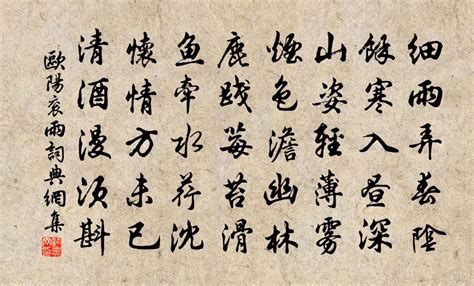 細雨弄春陰
餘寒入晝深
山姿輕薄霧
煙色澹幽林
鹿踐莓苔滑
魚牽水荇沈
懷情方未已
清酒漫須斟
歐陽袞雨詞典網集